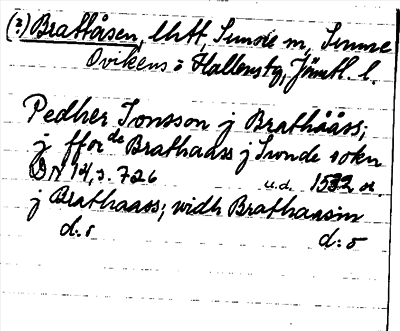 (?) Brattåsen, Utt, Sunne sn, Sunne
Ovikens o Hallens tg, Jämtl. l.
Pedher Jonsson j Brathååss;
j fforde Brathaass j Sunde sokn
DN 14, s. 726 u.d. 1532 or.
j Brathaass; widh Brathaasin
d:o d:o